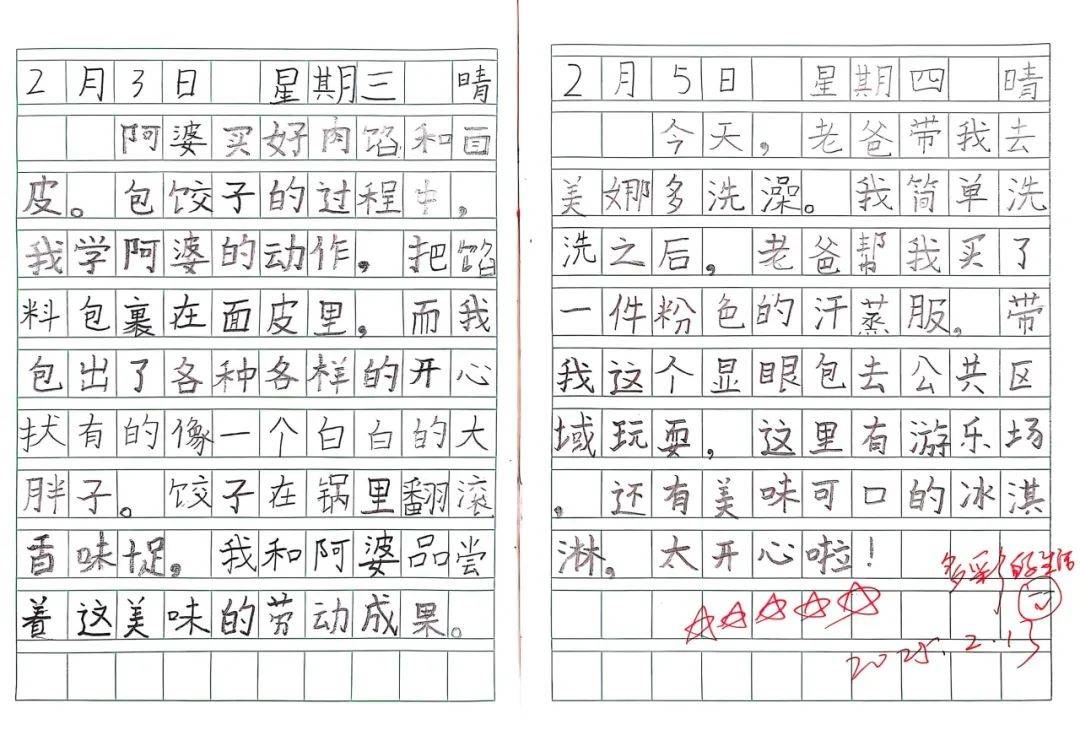 2月3日 星期三 晴
阿婆买好肉馅和面
皮。包饺子的过程中，
我学阿婆的动作，把馅
料包裹在面皮里，而我
包出了各种各样的开心
状有的像一个白白的大
胖子。饺子在锅里翻滚
香味十足，我和阿婆品尝
着这美味的劳动成果。
2月5日 星期四 晴
今天，老爸带我去
美娜多洗澡。我简单洗
洗之后，老爸帮我买了
一件粉色的汗蒸服，带
我这个显眼包去公共区
域玩耍，这里有游乐场
，还有美味可口的冰淇
淋，太开心啦！
多彩的生活
2025.2.13